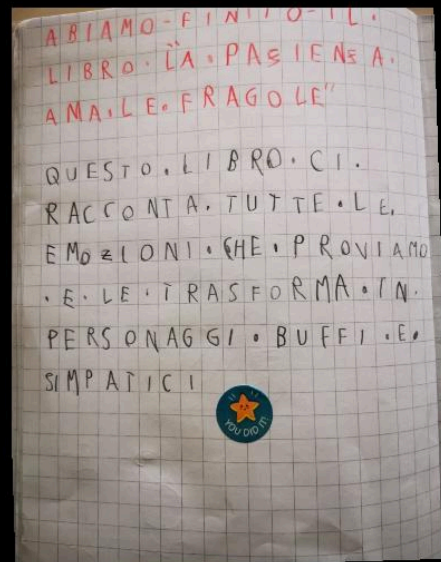 ABIAMO-FINITO-IL.
LIBRO."LA.PASIENSA.
AMA.LE.FRAGOLE"
QUESTO.LIBRO.CI.
RACCONTA.TUTTE.LE.
EMOZIONI.CHE.PROVIAMO
.E.LE.TRASFORMA.IN.
PERSONAGGI.BUFFI.E.
SIMPATICI
YOU DID IT!